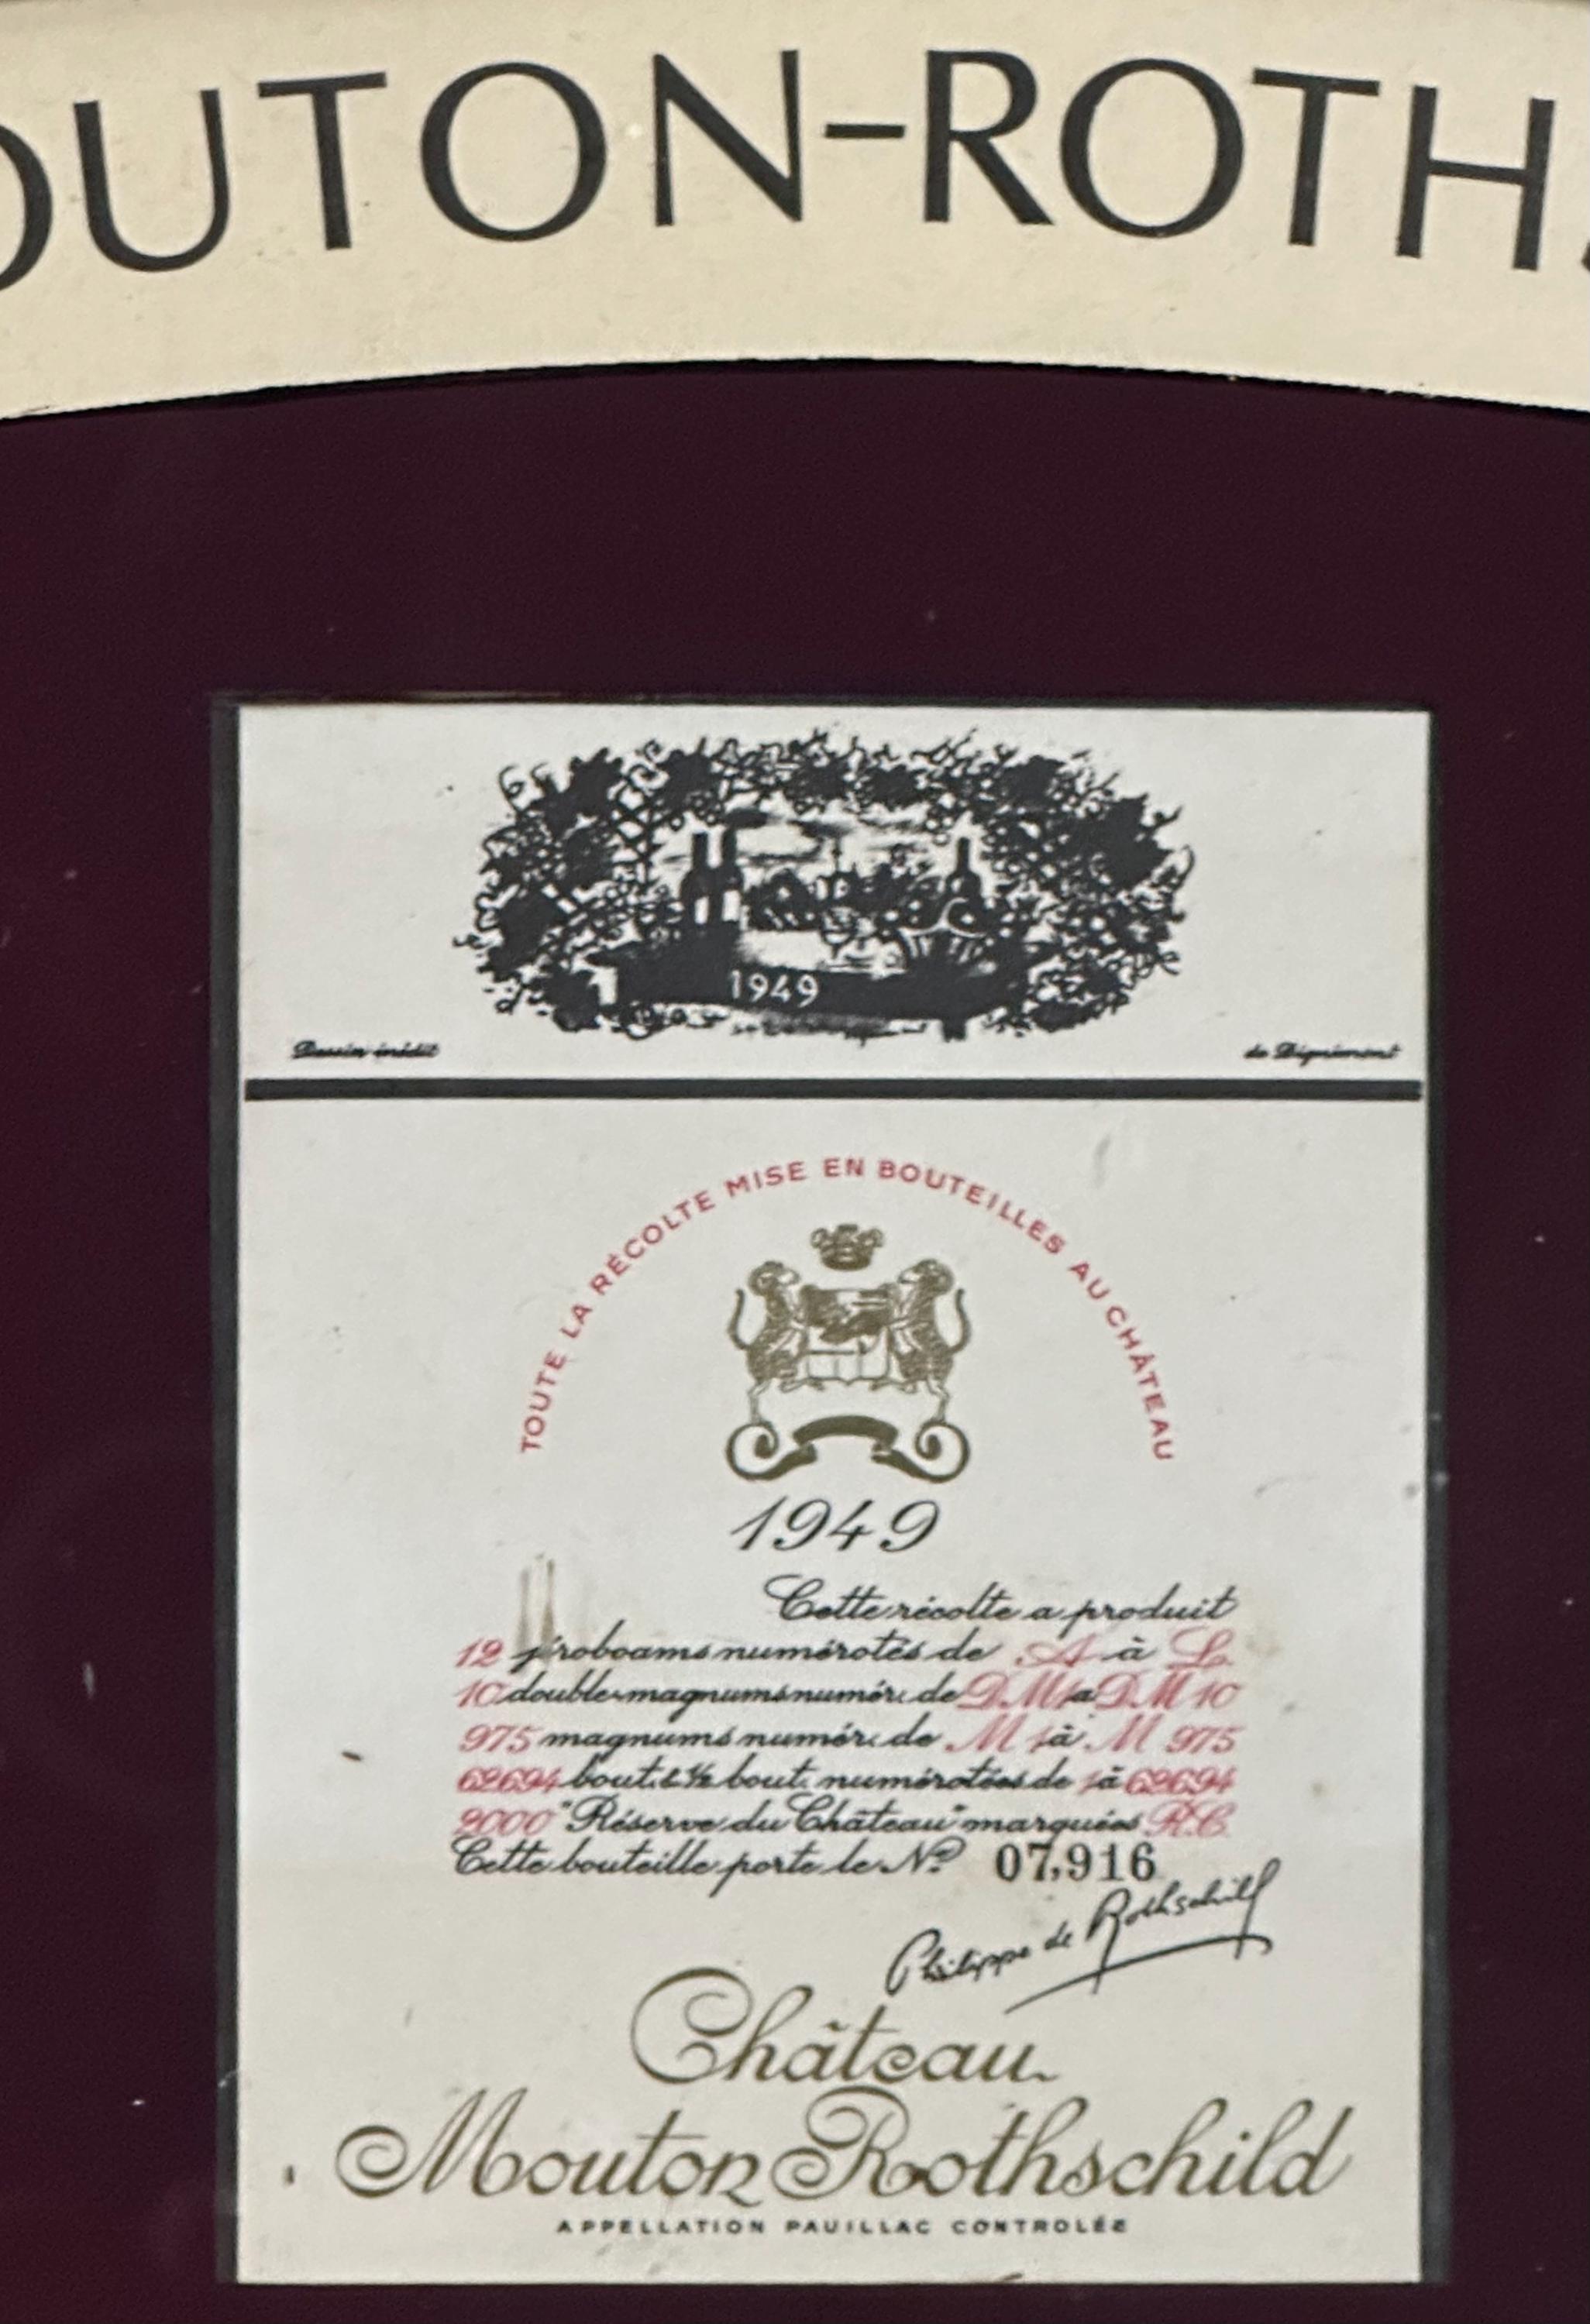 OUTON-ROTH
1949
Dessin inédit
de Dignimont
TOUTE LA RÉCOLTE MISE EN BOUTEILLES AU CHÂTEAU
1949
Cette récolte a produit
12 jéroboams numérotés de A à L
10 double-magnums numér. de DM1 à DM10
975 magnums numér. de M1 à M 975
62694 bout. & ½ bout. numérotées de 1 à 62694
2000 "Réserve du Château" marquées R.C.
Cette bouteille porte le Nº 07,916
Philippe de Rothschild
Château
Mouton Rothschild
APPELLATION PAUILLAC CONTROLÉE